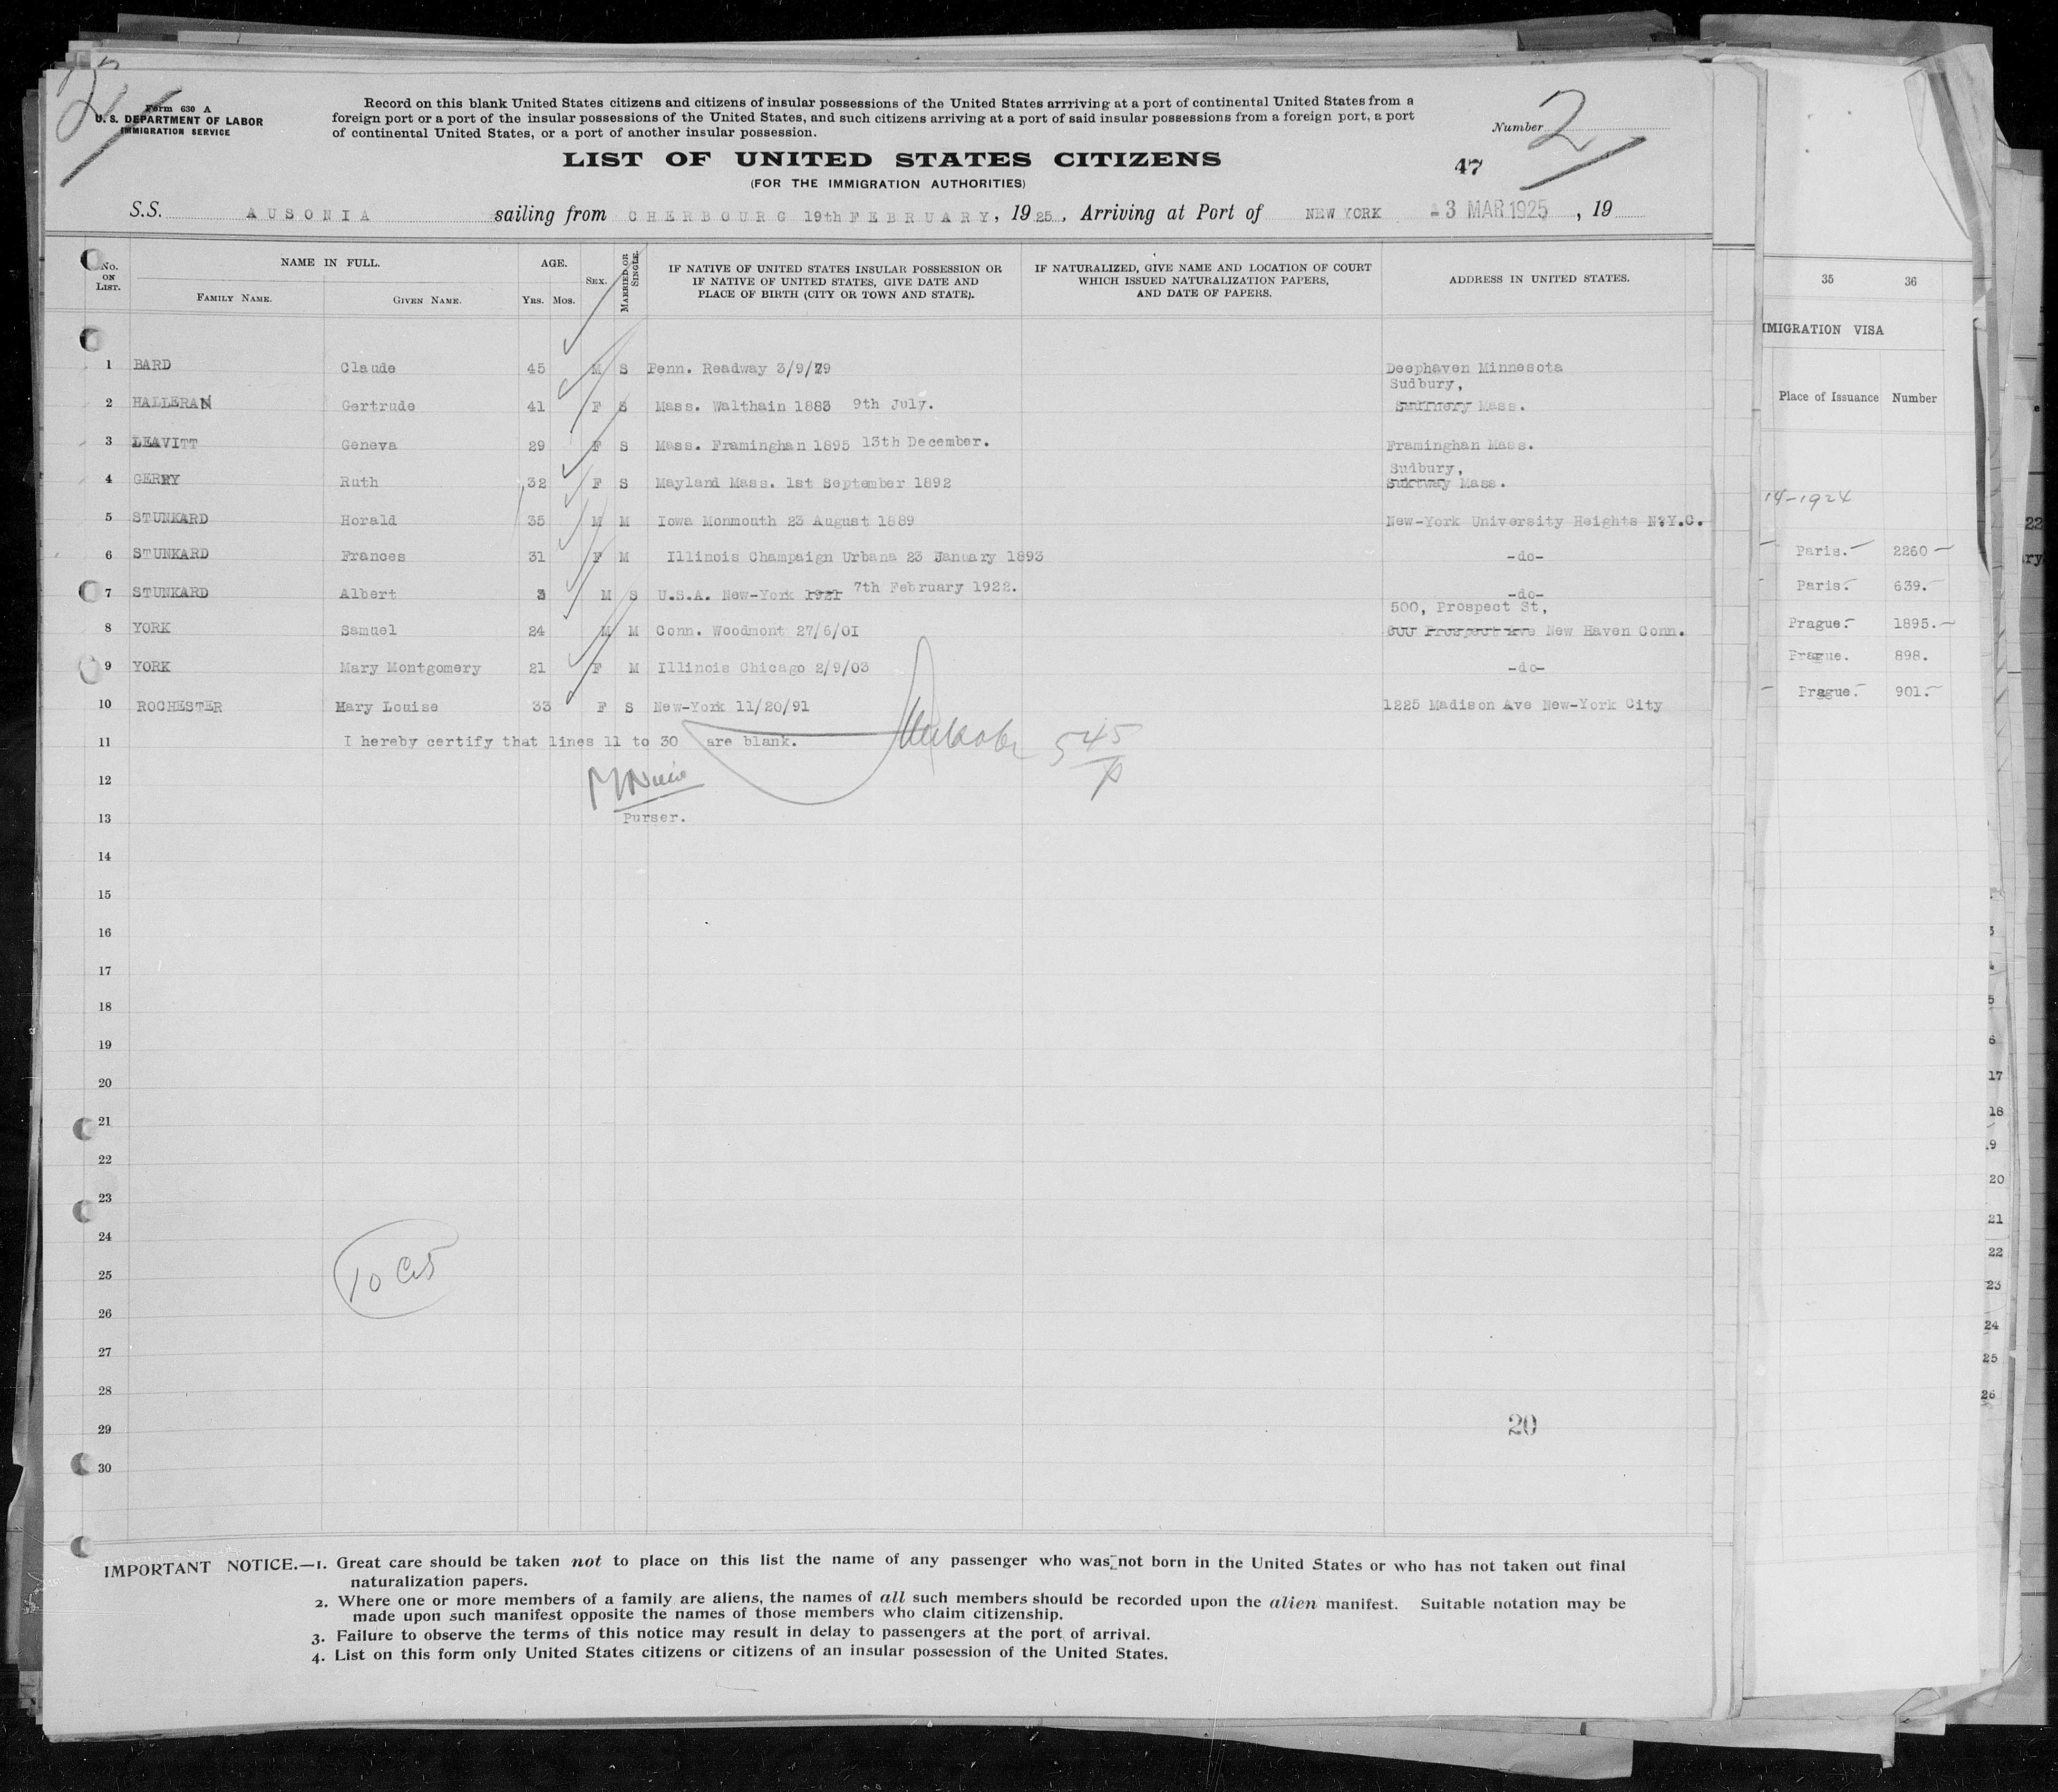 Form 630 A
U. S. DEPARTMENT OF LABOR
IMMIGRATION SERVICE
Record on this blank United States citizens and citizens of insular possessions of the United States arrriving at a port of continental United States from a
foreign port or a port of the insular possessions of the United States, and such citizens arriving at a port of said insular possessions from a foreign port, a port
of continental United States, or a port of another insular possession.
Number 2
LIST OF UNITED STATES CITIZENS
47
(FOR THE IMMIGRATION AUTHORITIES)
S.S. AUSONIA sailing from CHERBOURG 19th FEBRUARY, 1925, Arriving at Port of NEW YORK 3 MAR 1925, 19
No. ON LIST. NAME IN FULL. AGE. SEX. MARRIED OR SINGLE. IF NATIVE OF UNITED STATES INSULAR POSSESSION OR IF NATIVE OF UNITED STATES, GIVE DATE AND PLACE OF BIRTH (CITY OR TOWN AND STATE). IF NATURALIZED, GIVE NAME AND LOCATION OF COURT WHICH ISSUED NATURALIZATION PAPERS, AND DATE OF PAPERS. ADDRESS IN UNITED STATES.
FAMILY NAME. GIVEN NAME. YRS. MOS.
1 BARD Claude 45 M S Penn. Readway 3/9/79 Deephaven Minnesota
Sudbury,
2 HALLERAN Gertrude 41 F S Mass. Walthain 1883 9th July. Mass.
3 LEAVITT Geneva 29 F S Mass. Framinghan 1895 13th December. Framinghan Mass.
Sudbury,
4 GERRY Ruth 32 F S Mayland Mass. 1st September 1892 Mass.
5 STUNKARD Horald 35 M M Iowa Monmouth 23 August 1889 New-York University Heights N.Y.C.
6 STUNKARD Frances 31 F M Illinois Champaign Urbana 23 January 1893 -do-
7 STUNKARD Albert 3 M S U.S.A. New-York 1921 7th February 1922. -do-
500, Prospect St,
8 YORK Samuel 24 M M Conn. Woodmont 27/6/01 600 Prospect Ave New Haven Conn.
9 YORK Mary Montgomery 21 F M Illinois Chicago 2/9/03 -do-
10 ROCHESTER Mary Louise 33 F S New-York 11/20/91 1225 Madison Ave New-York City
11 I hereby certify that lines 11 to 30 are blank.
545
12
13 Purser.
14
15
16
17
18
19
20
21
22
23
24
25 10 CS
26
27
28
29 20
30
IMPORTANT NOTICE.—1. Great care should be taken not to place on this list the name of any passenger who was not born in the United States or who has not taken out final
naturalization papers.
2. Where one or more members of a family are aliens, the names of all such members should be recorded upon the alien manifest. Suitable notation may be
made upon such manifest opposite the names of those members who claim citizenship.
3. Failure to observe the terms of this notice may result in delay to passengers at the port of arrival.
4. List on this form only United States citizens or citizens of an insular possession of the United States.
35 36
MIGRATION VISA
Place of Issuance Number
14-1924
Paris. 2260
Paris. 639.
Prague. 1895.
Prague. 898.
Prague. 901.
22
ry
5
6
17
18
9
20
21
22
23
24
25
26